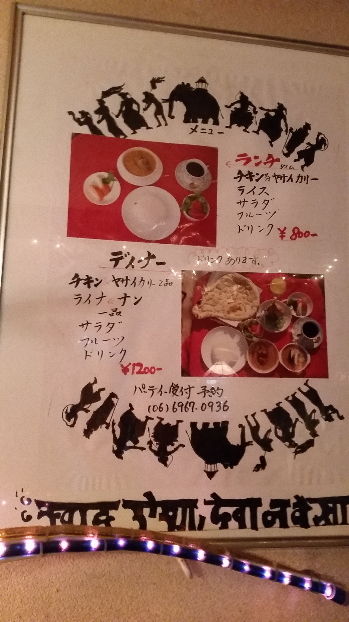 メニュー
ランチ
チキン or ヤサイカリー
ライス
サラダ
フルーツ
ドリンク ¥800-
ディナー
ドリンクあります。
チキン ヤサイカリー 2品
ライナーナン
一品
サラダ
フルーツ
ドリンク
¥1200-
パーティー受付 予約
(06) 6969-0936